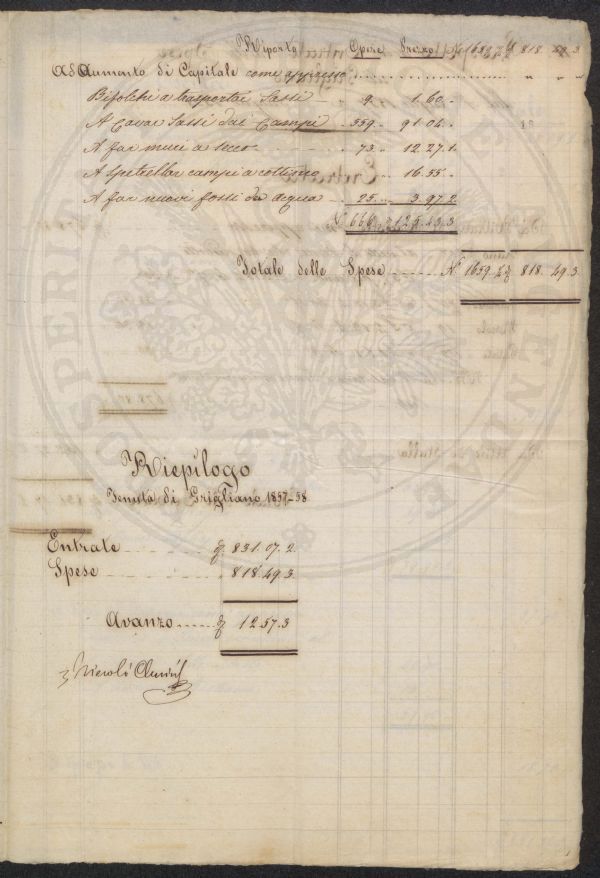 Riporto Opere Prezzo 818. 49.3
Ad Aumento di Capitale come appresso
Bifolchi a trasportar Sassi 9. 1.60.
A Cavar Sassi dai Campi 559. 91.04.
A far muri a secco 73. 12.27.1.
A spetrellar campi a cottimo 16.55.
A far nuovi fossi da acqua 25. 3.97.2
N. 666. 125.43.3
Totale delle Spese N. 1659. 818. 49.3
Riepilogo
Tenuta di Grigliano 1857-58
Entrate 831.07.2
Spese 818.49.3
Avanzo 12.57.3
Nicolò